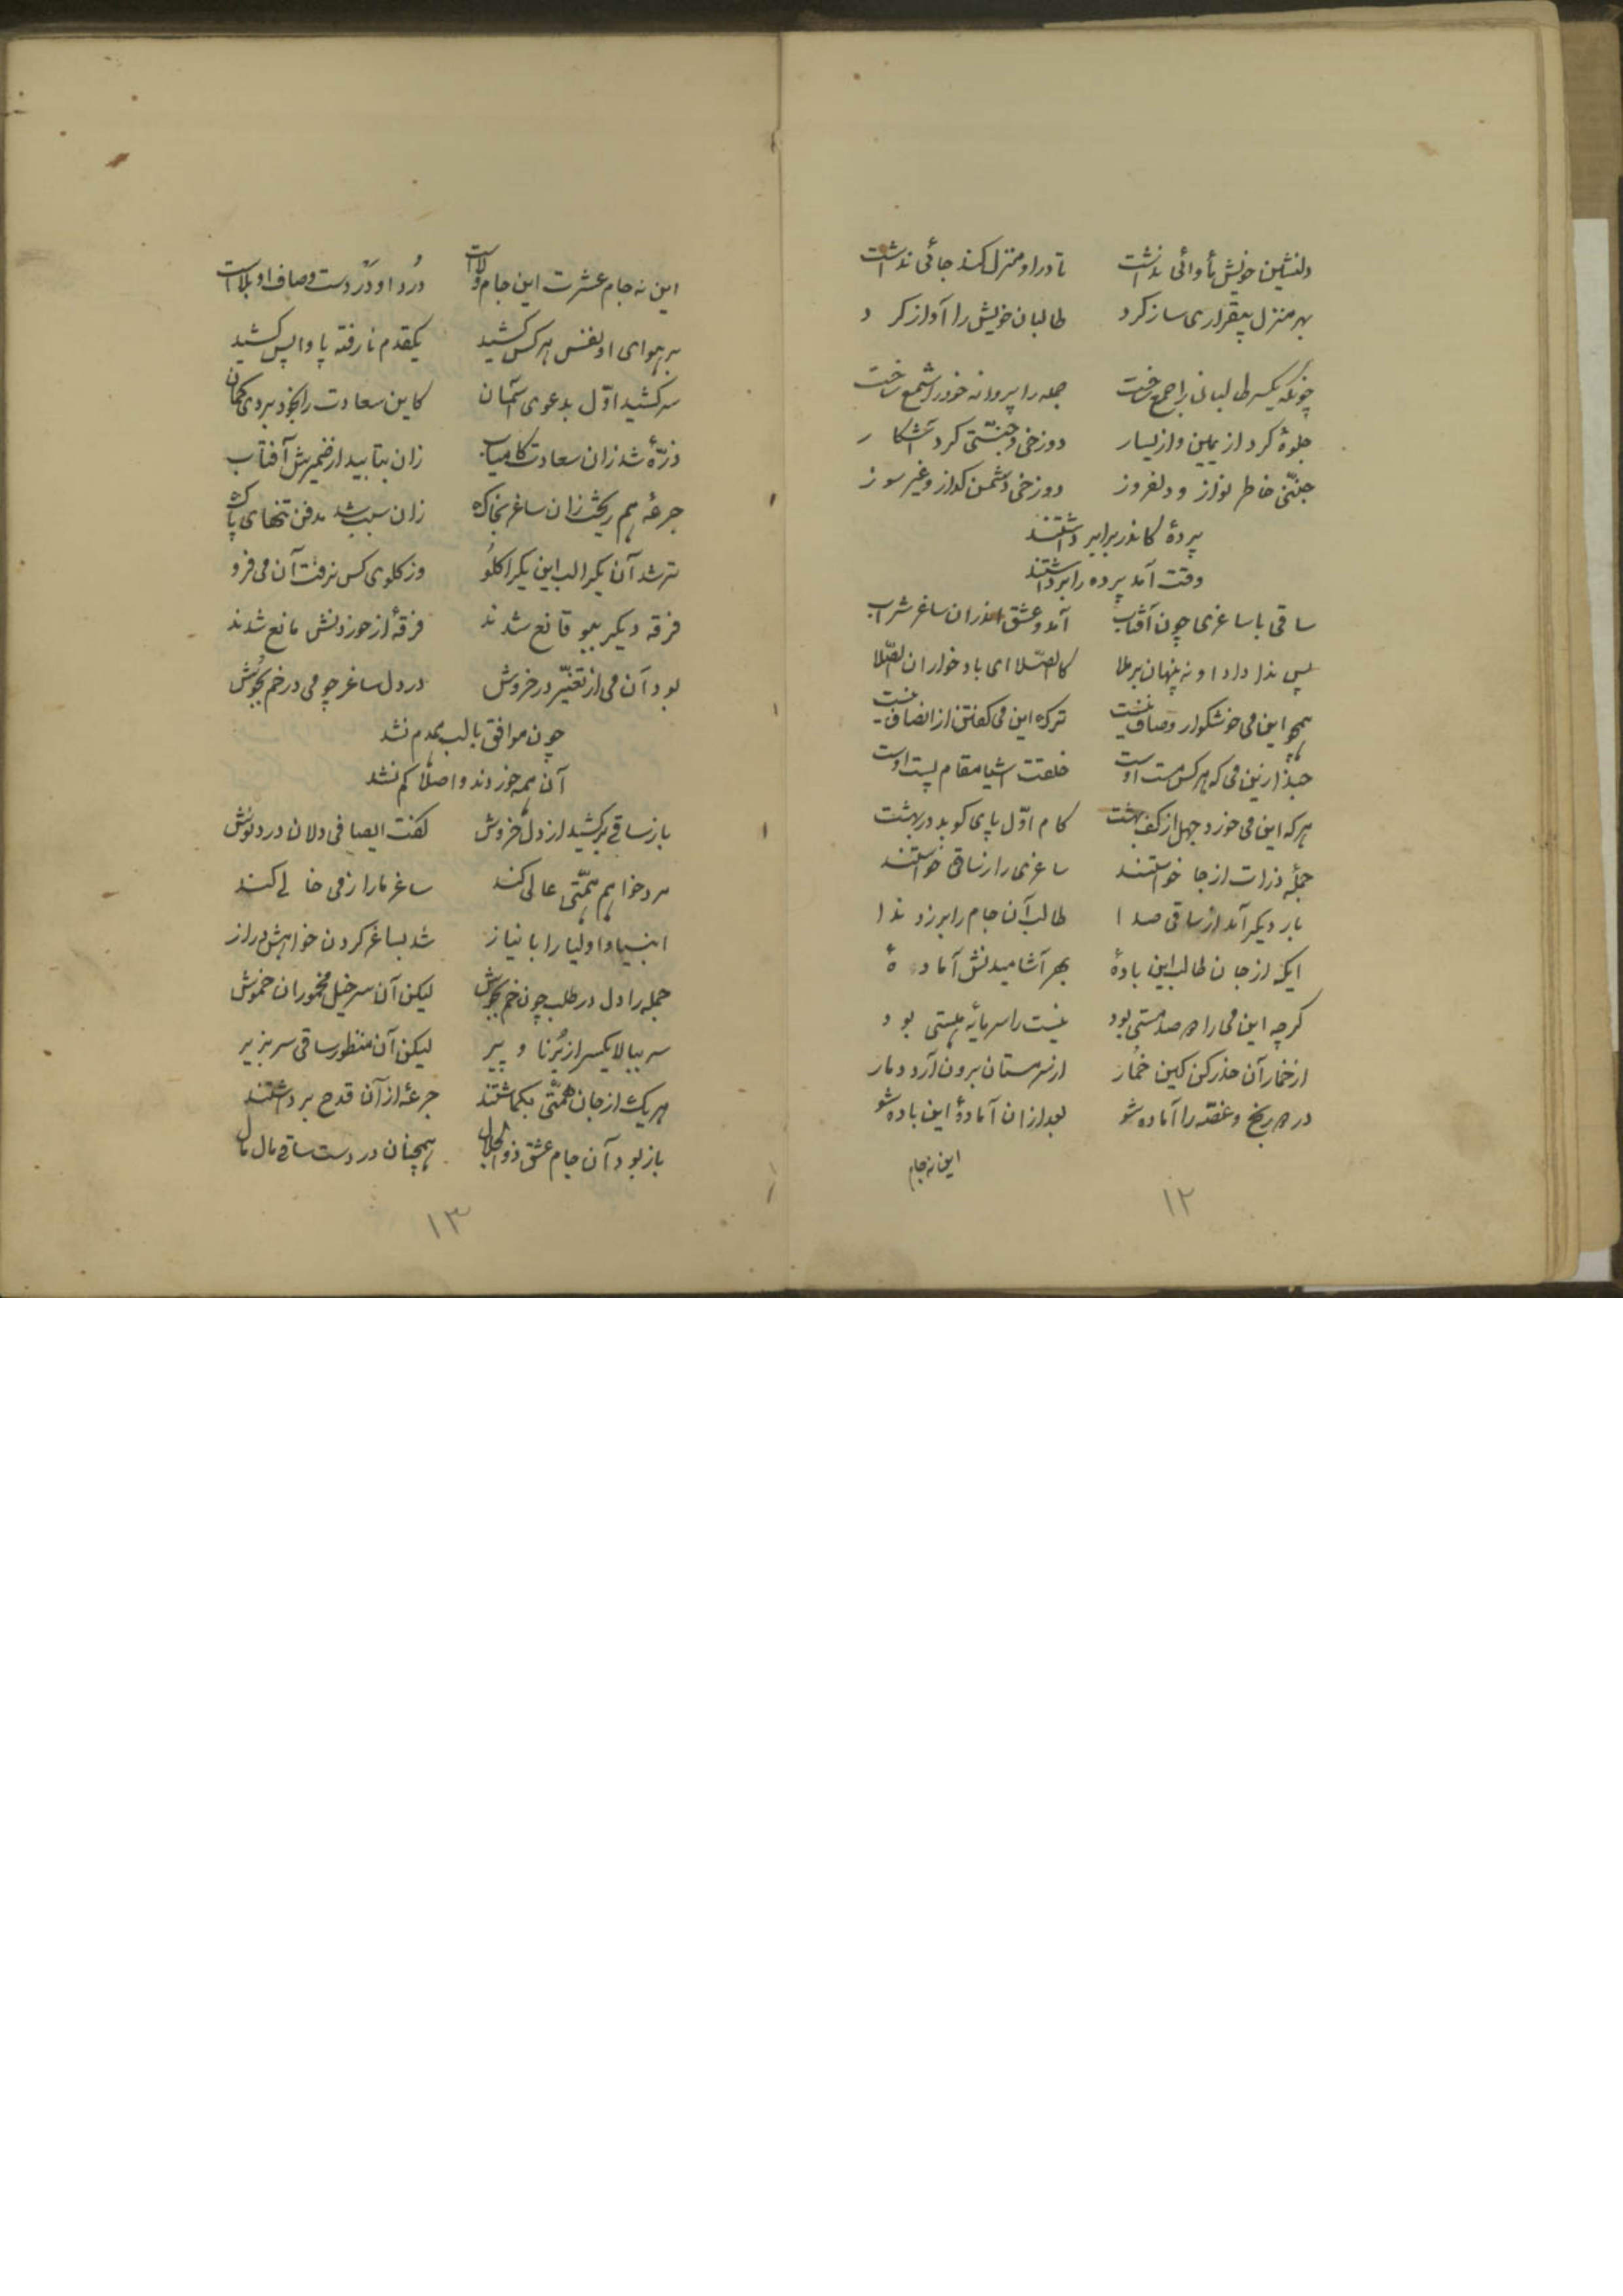 دلنشین خویش مأوائی نداشت تا در او منزل کند جائی نداشت
بهر منزل بیقراری ساز کرد طالبان خویش را آواز کرد
چونکه یکسر طالبان را جمع ساخت جمله را پروانه خود را شمع ساخت
جلوهٔ کرد از یمین و از یسار دوزخی و جنّتی کرد آشکار
جنّتی خاطر نواز و دلفروز دوزخی دشمن کداز و غیر سوز
پردهٔ کاندر برابر داشتند
وقت آمد پرده را برداشتند
ساقی با ساغری چون آفتاب آمد و عشق اندران ساغر شراب
پس ندا داد او نه پنهان برملا کالصّلا ای باده خواران الصّلا
همچو این می خوشکوار و صاف نیست ترک این می کفتن از انصاف نیست
حبّذا زین می که هر کس مست اوست خلقت اشیا مقام پست اوست
هر که این می خورد جهل از کف بهشت کام اوّل پای کوبد در بهشت
جملهٔ ذرات از جا خواستند ساغری را ز ساقی خواستند
بار دیکر آمد از ساقی صدا طالب آن جام را برزد ندا
ایکه از جان طالب این بادهٔ بهر آشامیدنش آمادهٔ
کرچه این می را دو صد مستی بود نیست را سرمایهٔ هستی بود
از خمار آن حذر کن کین خمار از سر مستان برون آرد دمار
درد و رنج و غصّه را آماده شو بعد از ان آمادهٔ این باده شو
این نه جام
۱۲
این نه جام عشرت این جام ولاست دُرد او دَرد است و صاف او بلاست
بر هوای او نفس هر کس کشید یکقدم نا رفته پا واپس کشید
سر کشید اوّل بدعوی آسمان کاین سعادت را بخود بردی کمان
ذرّهٔ شد زان سعادت کامیاب زان بتابید از ضمیرش آفتاب
جرعهٔ هم ریخت زان ساغر بخاک زان سبب شد مدفن تنهای پاک
تر شد آن یک را لب این یک را کلو وز کلوی کس نرفت آن می فرو
فرقه دیکر ببو قانع شدند فرقهٔ از خوردنش مانع شدند
بود آن می از تغیّر در خروش در دل ساغر چو می در خم بجوش
چون موافق با لب همدم نشد
آن همه خوردند و اصلا کم نشد
باز ساقی برکشید از دل خروش کفت ایصافی دلان دردنوش
مرد خواهم همّتی عالی کند ساغر ما را ز می خالی کند
انبیا و اولیا را با نیاز شد بساغر کردن خواهش دراز
جمله را دل در طلب چون خم بجوش لیکن آن سرخیل مخموران خموش
سر ببالا یکسر از بُرنا و پیر لیکن آن منظور ساقی سر بزیر
هریک از جان همّتی بکماشتند جرعهٔ از آن قدح برداشتند
باز بود آن جام عشق ذوالجلال همچنان در دست ساقی مال مال
۱۳